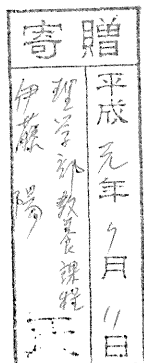 寄贈
平成元年9月11日
理学部教養課程
伊藤 陽